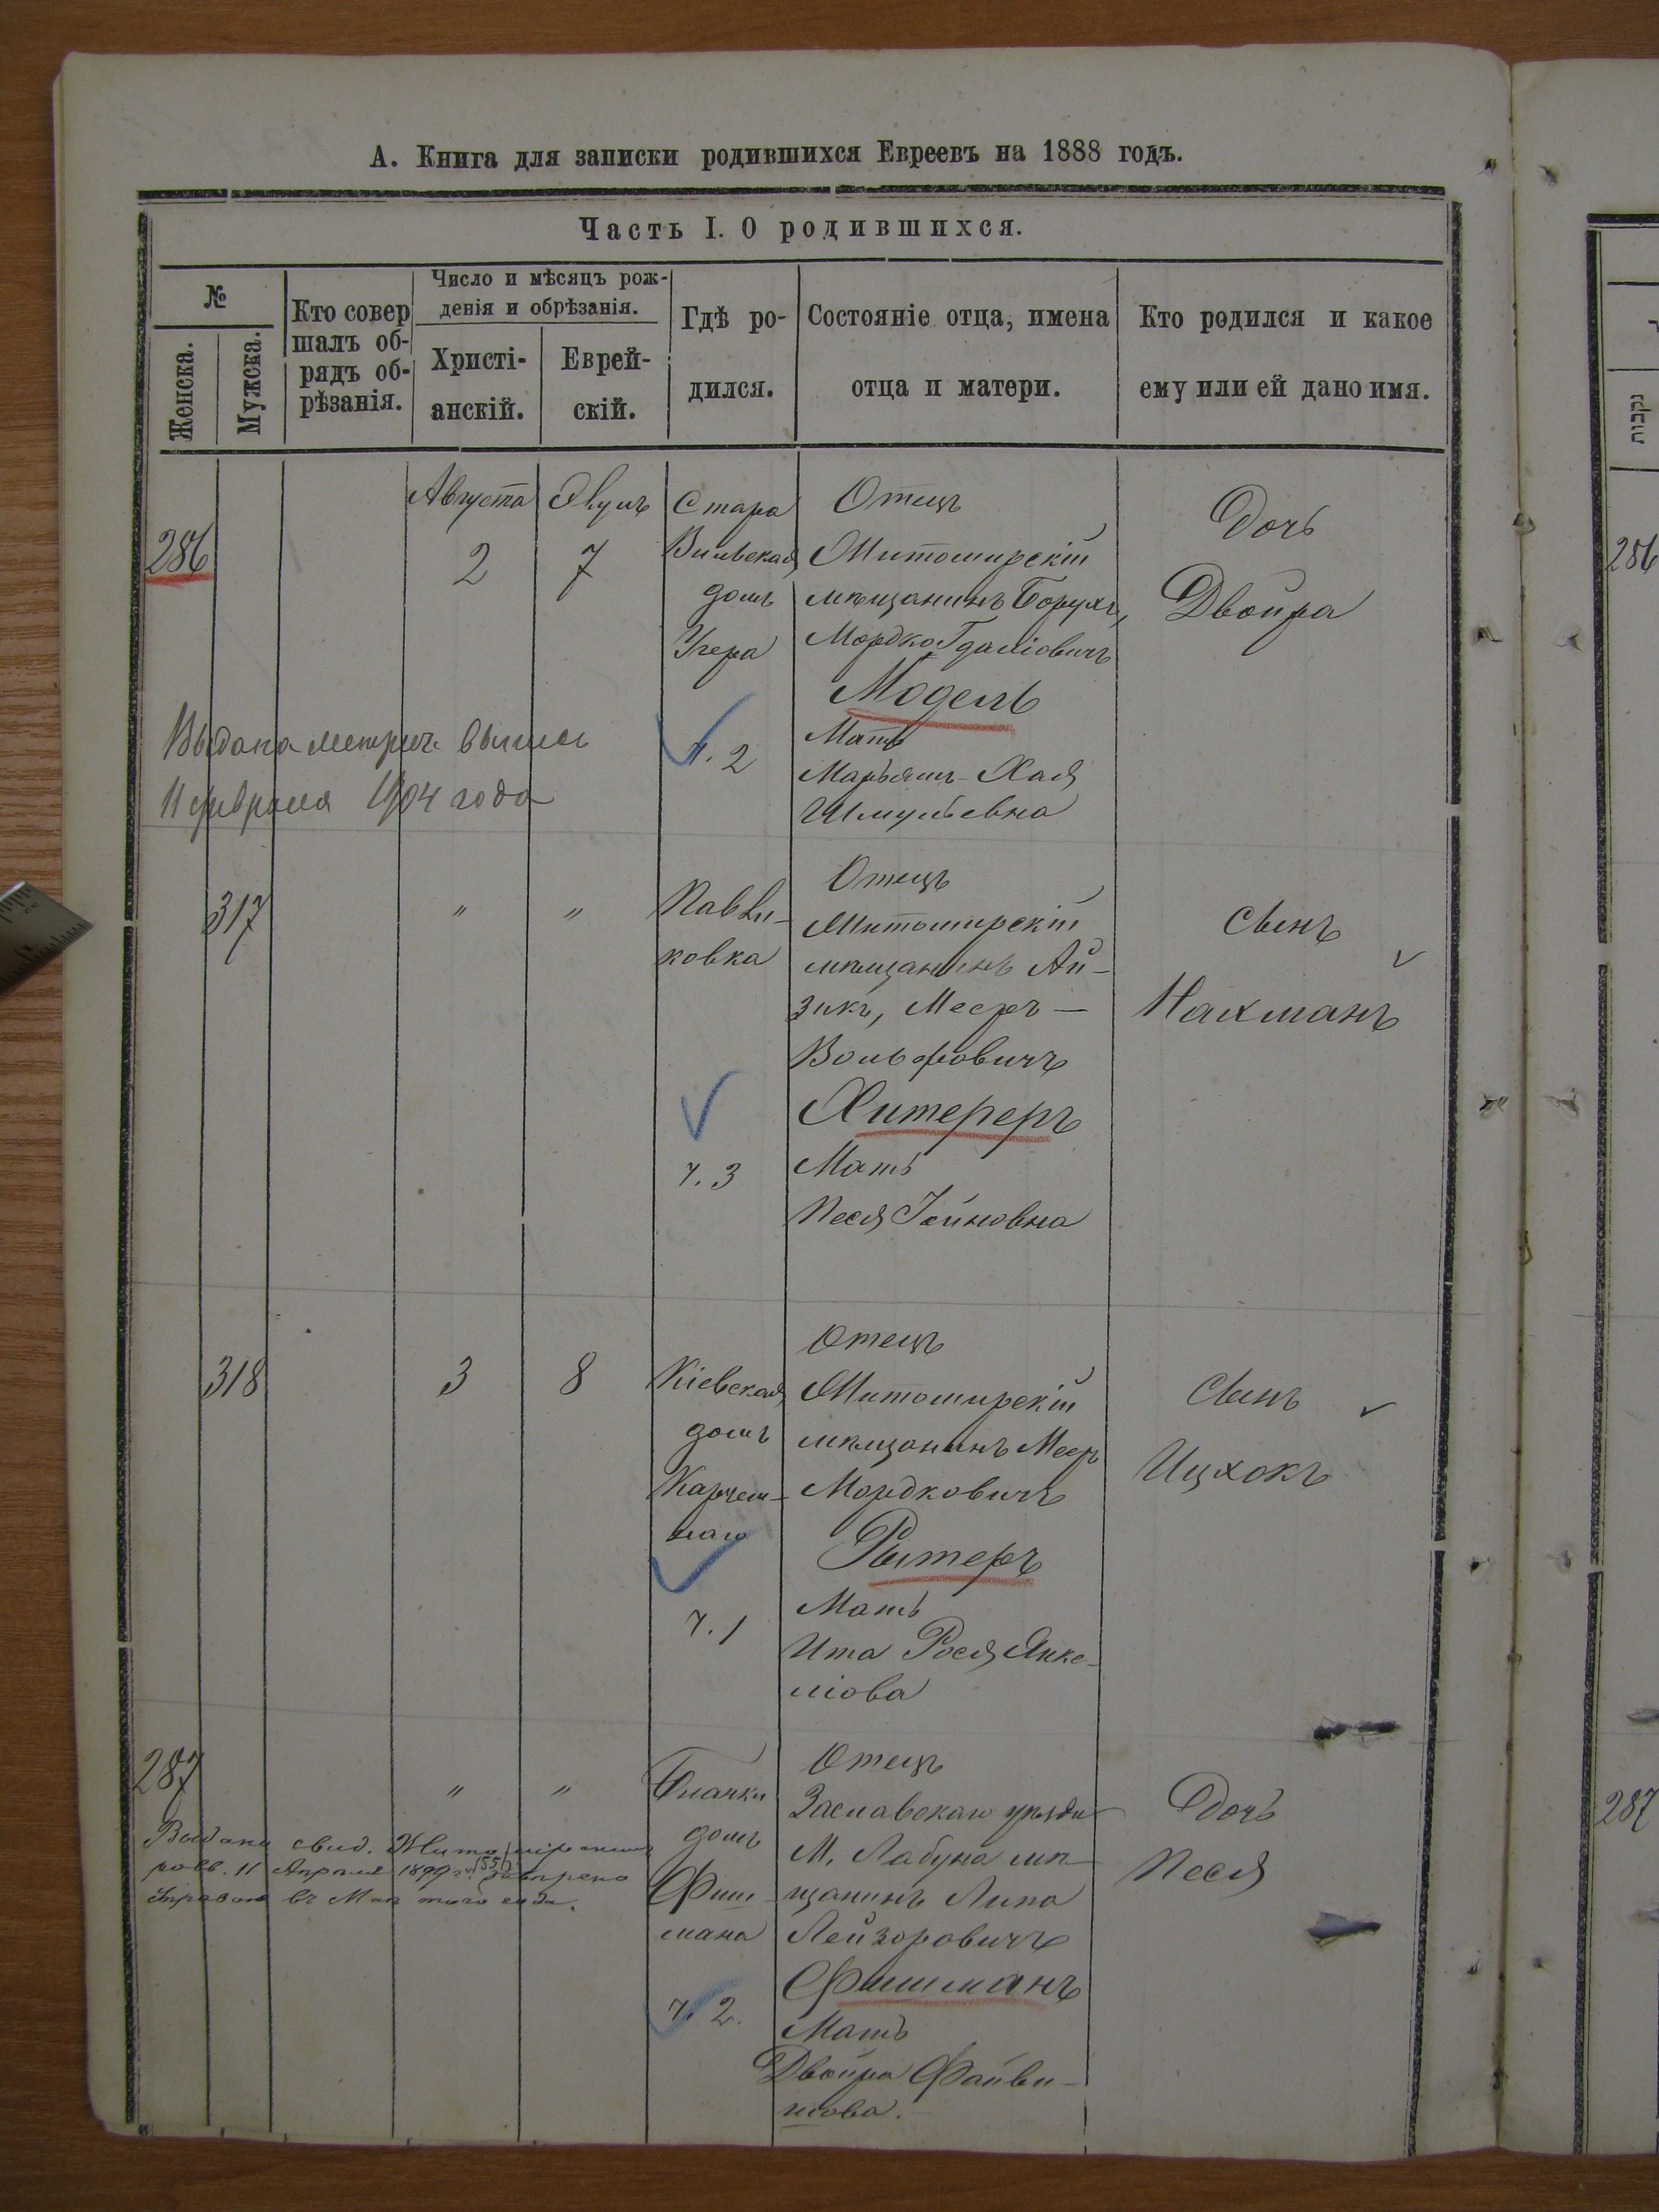 А. Книга для записки родившихся Евреевъ на 1888 годъ.
Часть I. О родившихся.
№
Женска.
Мужска.
Кто совер
шалъ об-
рядъ об-
рѣзанія.
Число и мѣсяцъ рож-
денія и обрѣзанія.
Христі-
анскій.
Еврей-
скій.
Гдѣ ро-
дился.
Состояніе отца, имена
отца и матери.
Кто родился и какое
ему или ей дано имя.
286
Августа
2
7
Стара
Вильская
домъ
Угера
ч. 2
Отецъ
Житомирскій
мѣщанинъ Борухъ,
Мордко Гдаліовичъ
Модель
Мать
Марьямъ-Хая
Шмульевна
Дочь
Двойра
Выдана метрич. выпись
11 февраля 1904 года
317
"
"
Павли-
ковка
ч. 3
Отецъ
Житомирскій
мѣщанинъ Ай-
зикъ, Мееръ -
Вольфовичъ
Хитереръ
Мать
Песя Іойновна
Сынъ
Нахманъ
318
3
8
Кіевская
домъ
ч. 1
Отецъ
Житомирскій
мѣщанинъ Мееръ
Мордковичъ
Рытеръ
Мать
Ита Рося Янке-
ліова
Сынъ
Ицхокъ
287
"
"
домъ
Фиш-
мана
ч. 2.
Отецъ
Заславскаго уѣзда
М. Лабуна мѣ-
щанинъ Липа
Лейзоровичъ
Фишманъ
Мать
Двойра Файви-
шова.
Дочь
Песя
Выдано свид. Житомірским
равв. 11 Апреля 1899
въ Мае того года.
286
287
נקבות